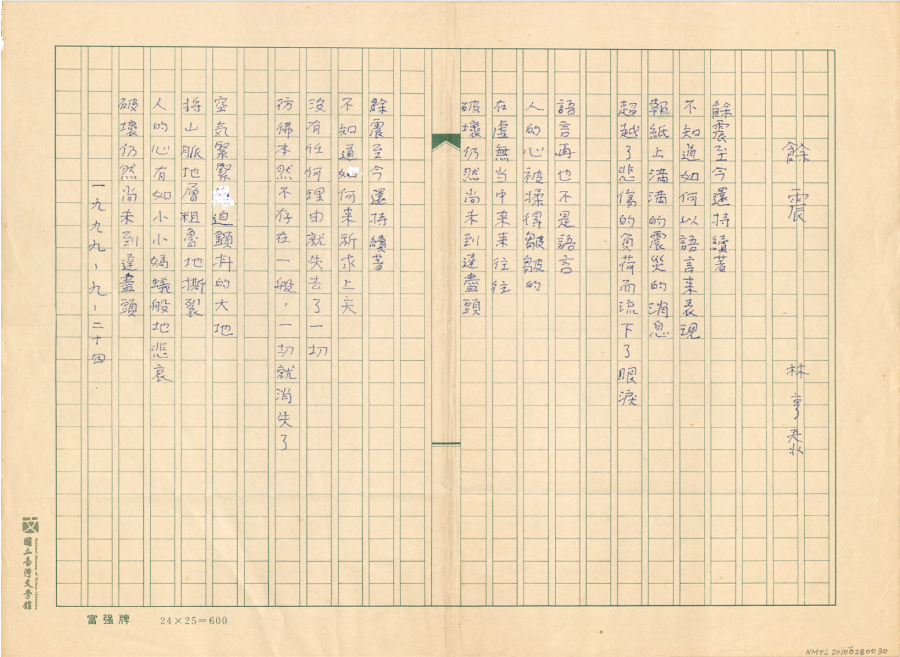 餘震
林亨泰
餘震至今還持續著
不知道如何以語言来表現
報紙上滿滿的震災的消息
超越了悲傷的負荷而流下了眼淚
語言再也不是語言
人的心被揉得皺皺的
在虛無当中来来往往
破壞仍然尚未到達盡頭
餘震至今還持續著
不知道如何来祈求上天
沒有任何理由就失去了一切
彷彿本然不存在一般，一切就消失了
空氣緊緊迫顫抖的大地
将山脈地層粗魯地撕裂
人的心有如小小螞蟻般地悲哀
破壞仍然尚未到達盡頭
一九九九、九、二十四
國立台灣文學館
National Museum of Taiwan Literature
富强牌 24×25=600
NMTL20100280030